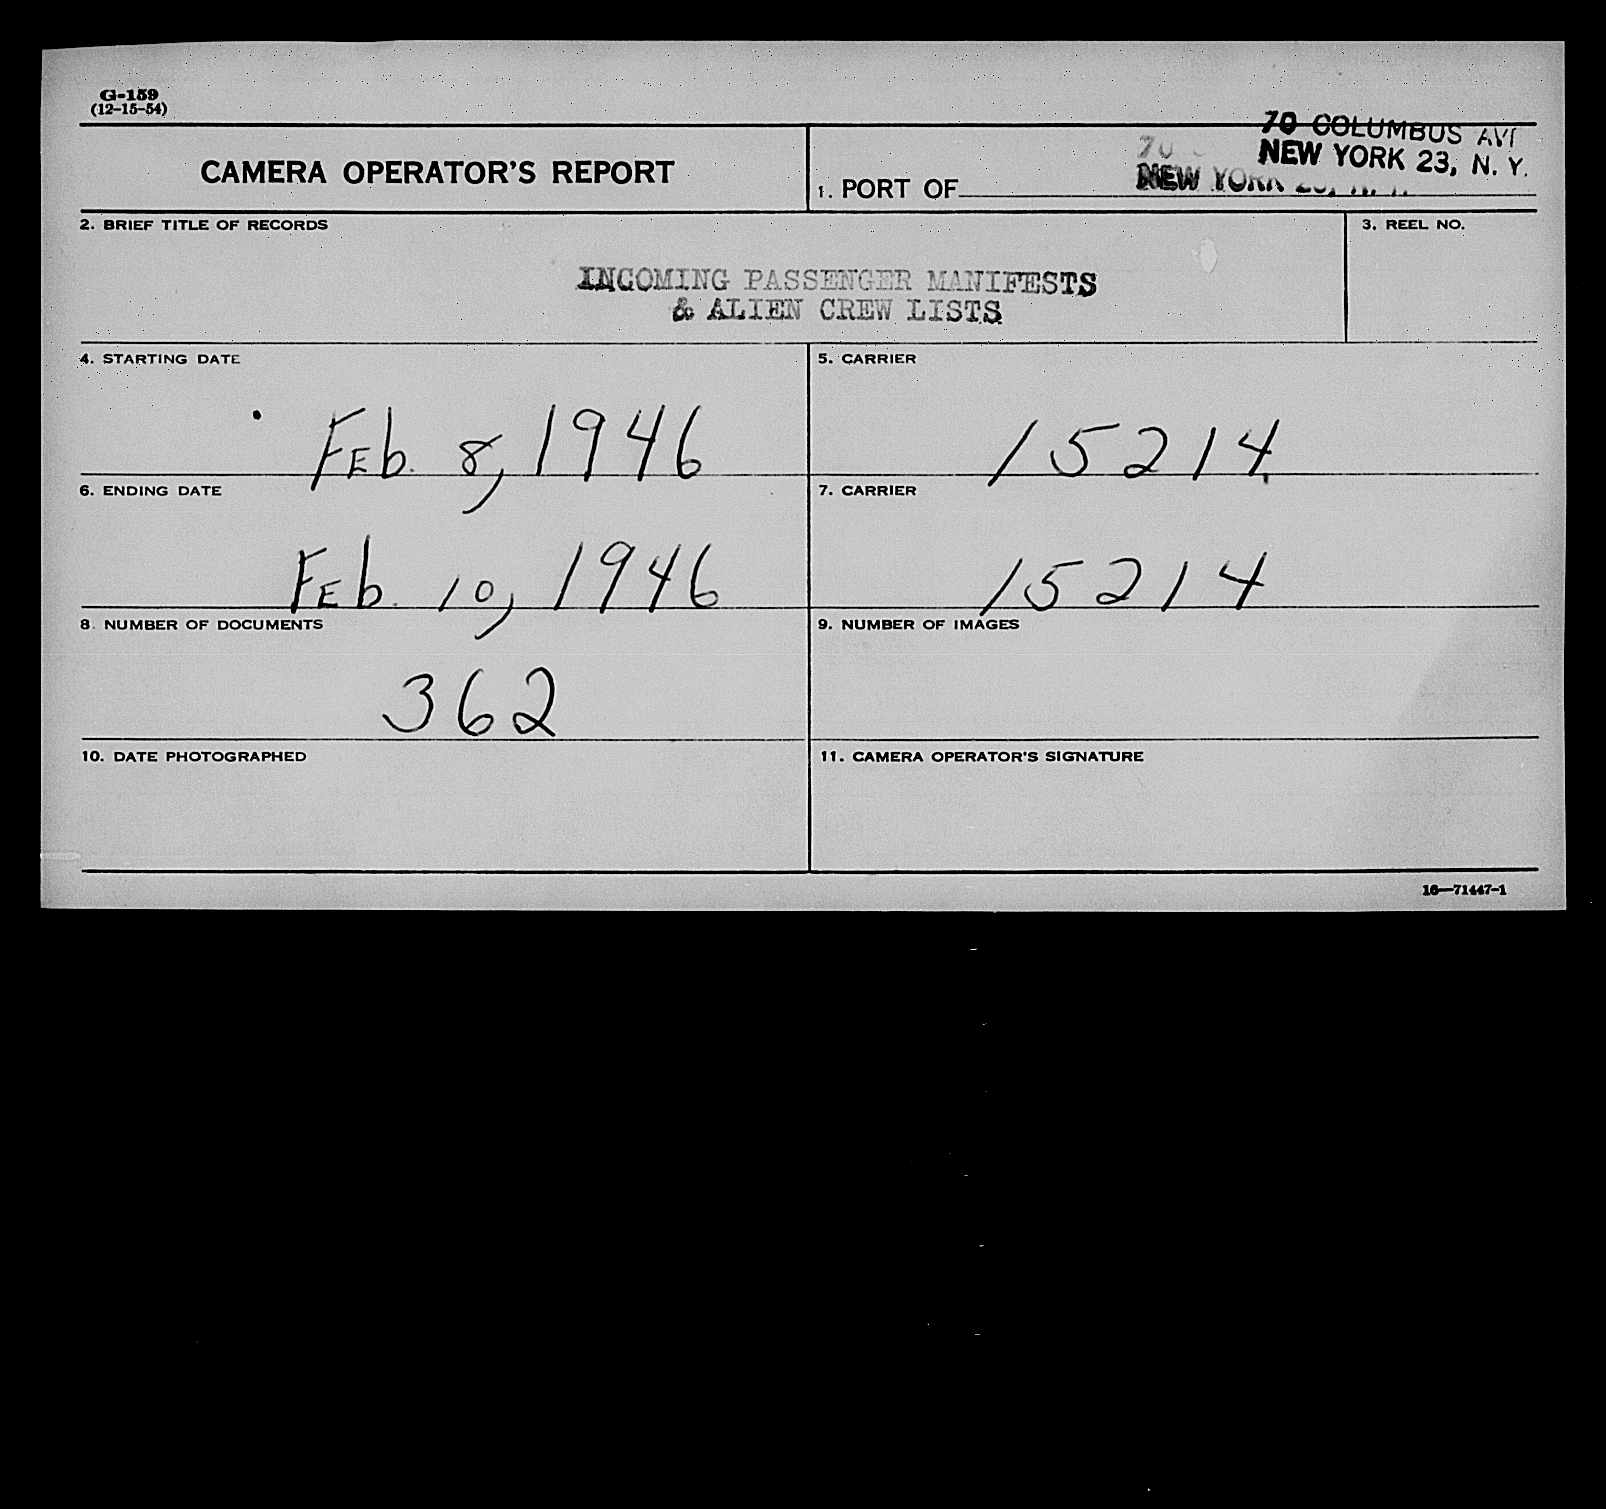 G-159
(12-15-54)
CAMERA OPERATOR'S REPORT
1. PORT OF
70 COLUMBUS AVE
NEW YORK 23, N. Y.
70
NEW YORK 23, N. Y.
2. BRIEF TITLE OF RECORDS
3. REEL NO.
INCOMING PASSENGER MANIFESTS
& ALIEN CREW LISTS
4. STARTING DATE
5. CARRIER
FEb. 8, 1946
15214
6. ENDING DATE
7. CARRIER
FEb. 10, 1946
15214
8. NUMBER OF DOCUMENTS
9. NUMBER OF IMAGES
362
10. DATE PHOTOGRAPHED
11. CAMERA OPERATOR'S SIGNATURE
16—71447-1